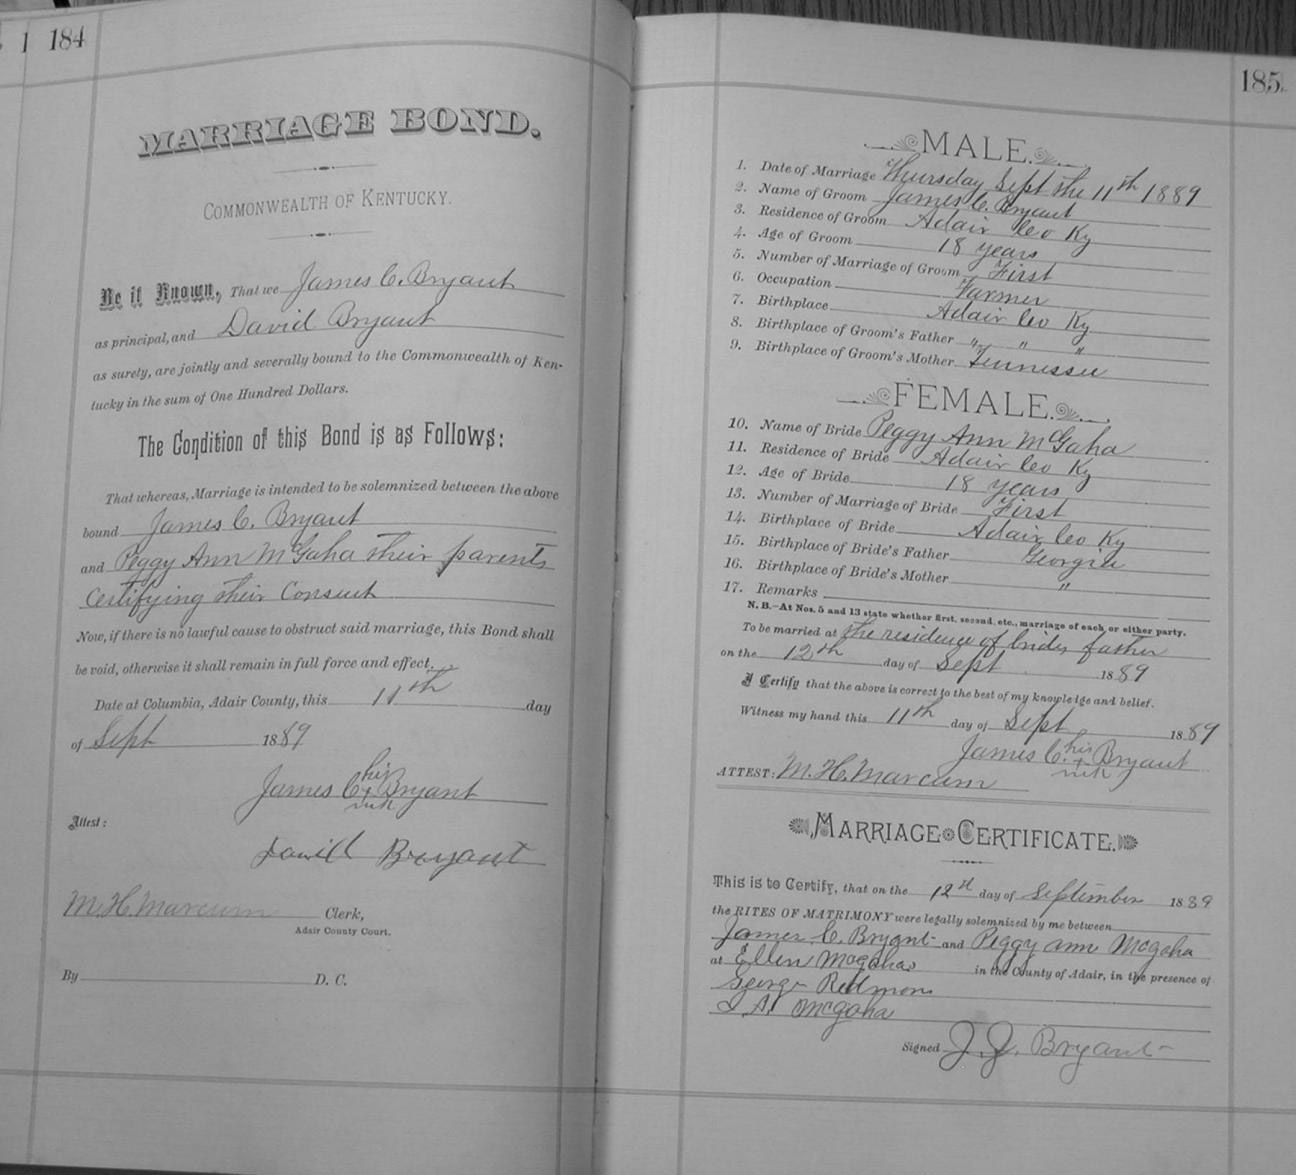 1 184
MARRIAGE BOND.
COMMONWEALTH OF KENTUCKY.
Be it Known, That we James C. Bryant
as principal, and David Bryant
as surety, are jointly and severally bound to the Commonwealth of Ken-
tucky in the sum of One Hundred Dollars.
The Condition of this Bond is as Follows:
That whereas, Marriage is intended to be solemnized between the above
bound James C. Bryant
and Peggy Ann McGaha their parents
certifying their Consent
Now, if there is no lawful cause to obstruct said marriage, this Bond shall
be void, otherwise it shall remain in full force and effect.
Date at Columbia, Adair County, this 11th day
of Sept 1889
James C. his x mrk Bryant
Attest:
David Bryant
M. H. Marcum Clerk,
Adair County Court.
By D. C.
185
MALE.
1. Date of Marriage Thursday Sept the 11th 1889
2. Name of Groom James C. Bryant
3. Residence of Groom Adair Co Ky
4. Age of Groom 18 years
5. Number of Marriage of Groom First
6. Occupation Farmer
7. Birthplace Adair Co Ky
8. Birthplace of Groom's Father " " "
9. Birthplace of Groom's Mother Tennessee
FEMALE.
10. Name of Bride Peggy Ann McGaha
11. Residence of Bride Adair Co Ky
12. Age of Bride 18 years
13. Number of Marriage of Bride First
14. Birthplace of Bride Adair Co Ky
15. Birthplace of Bride's Father Georgia
16. Birthplace of Bride's Mother "
17. Remarks
N. B.—At Nos. 5 and 13 state whether first, second, etc., marriage of each or either party.
To be married at the residence of brides father
on the 12th day of Sept 1889
I Certify that the above is correct to the best of my knowledge and belief.
Witness my hand this 11th day of Sept 1889
James C. his x mrk Bryant
ATTEST: M. H. Marcum
MARRIAGE CERTIFICATE.
This is to Certify, that on the 12th day of September 1889
the RITES OF MATRIMONY were legally solemnized by me between
James C. Bryant and Peggy ann Mcgaha
at Ellen Mcgahas in the County of Adair, in the presence of
George Redmon
J. A. Mcgaha
Signed J. J. Bryant